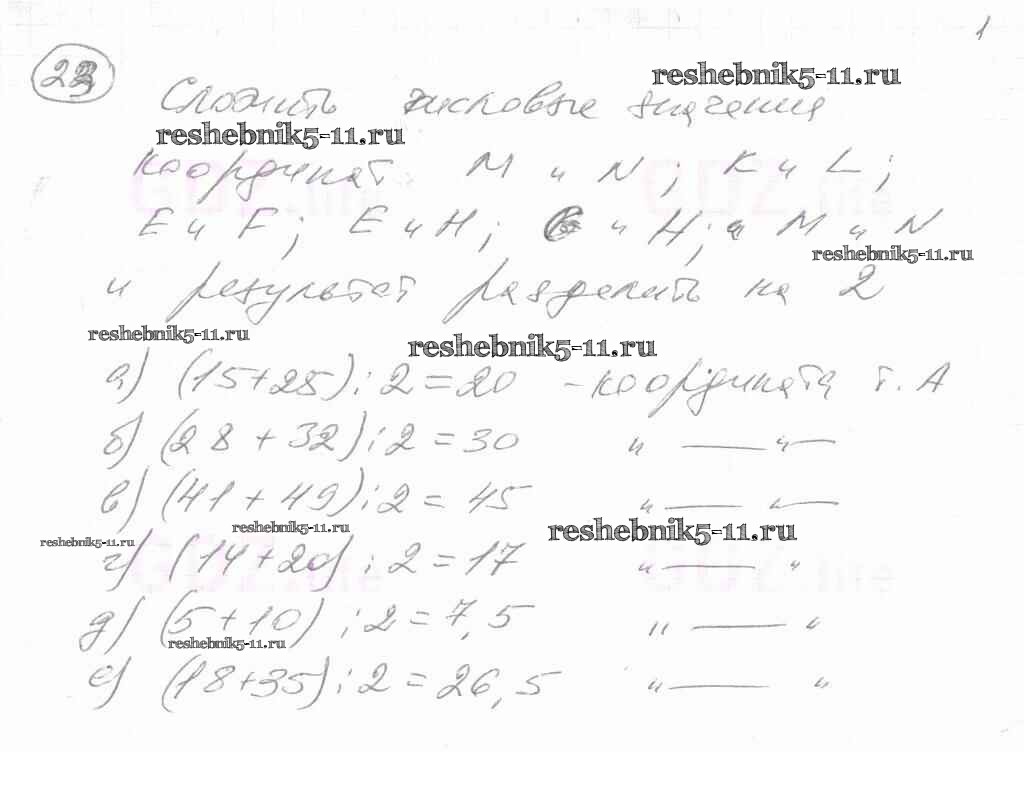 1
23
reshebnik5-11.ru
Сложить числовые значения
reshebnik5-11.ru
координат M и N; K и L;
GDZ.life GDZ.life
E и F; E и H; и H; и M и N
reshebnik5-11.ru
и результат разделить на 2
reshebnik5-11.ru
reshebnik5-11.ru
а) (15+25):2=20 - координата т. A
б) (28+32):2=30 " — " —
в) (41+49):2=45 " — " —
reshebnik5-11.ru reshebnik5-11.ru
reshebnik5-11.ru
GDZ.life GDZ.life
г) (14+20):2=17 " — "
д) (5+10):2=7,5 " — "
reshebnik5-11.ru
е) (18+35):2=26,5 " — "